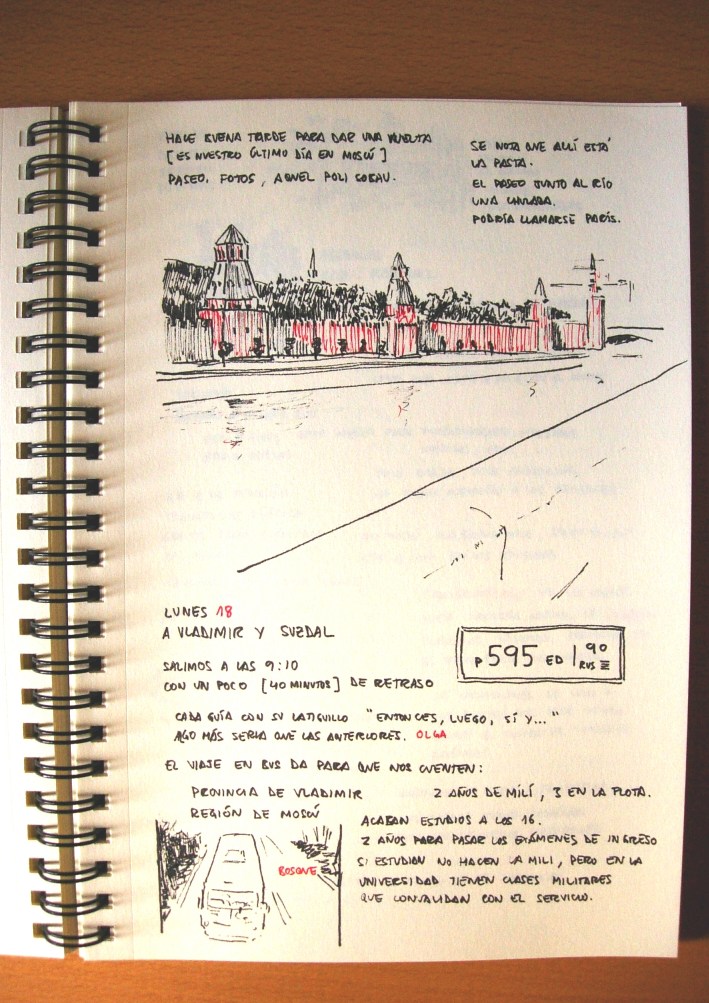 HACE BUENA TARDE PARA DAR UNA VUELTA
[ES NUESTRO ÚLTIMO DÍA EN MOSCÚ]
PASEO, FOTOS, AQUEL POLI
SE NOTA QUE ALLÍ ESTÁ
LA PASTA.
EL PASEO JUNTO AL RÍO
UNA CHULADA.
PODRÍA LLAMARSE PARÍS.
LUNES 18
A VLADIMIR Y SUZDAL
P 595 ED 190
RUS
SALIMOS A LAS 9:10
CON UN POCO [40 MINUTOS] DE RETRASO
CADA GUÍA CON SU LATIGUILLO "ENTONCES, LUEGO, SÍ Y..."
ALGO MÁS SERIA QUE LAS ANTERIORES. OLGA
EL VIAJE EN BUS DA PARA QUE NOS CUENTEN:
PROVINCIA DE VLADIMIR
REGIÓN DE MOSCÚ
BOSQUE
2 AÑOS DE MILÍ, 3 EN LA FLOTA.
ACABAN ESTUDIOS A LOS 16.
2 AÑOS PARA PASAR LOS EXÁMENES DE INGRESO
SI ESTUDIAN NO HACEN LA MILI, PERO EN LA
UNIVERSIDAD TIENEN CLASES MILITARES
QUE CONVALIDAN CON EL SERVICIO.